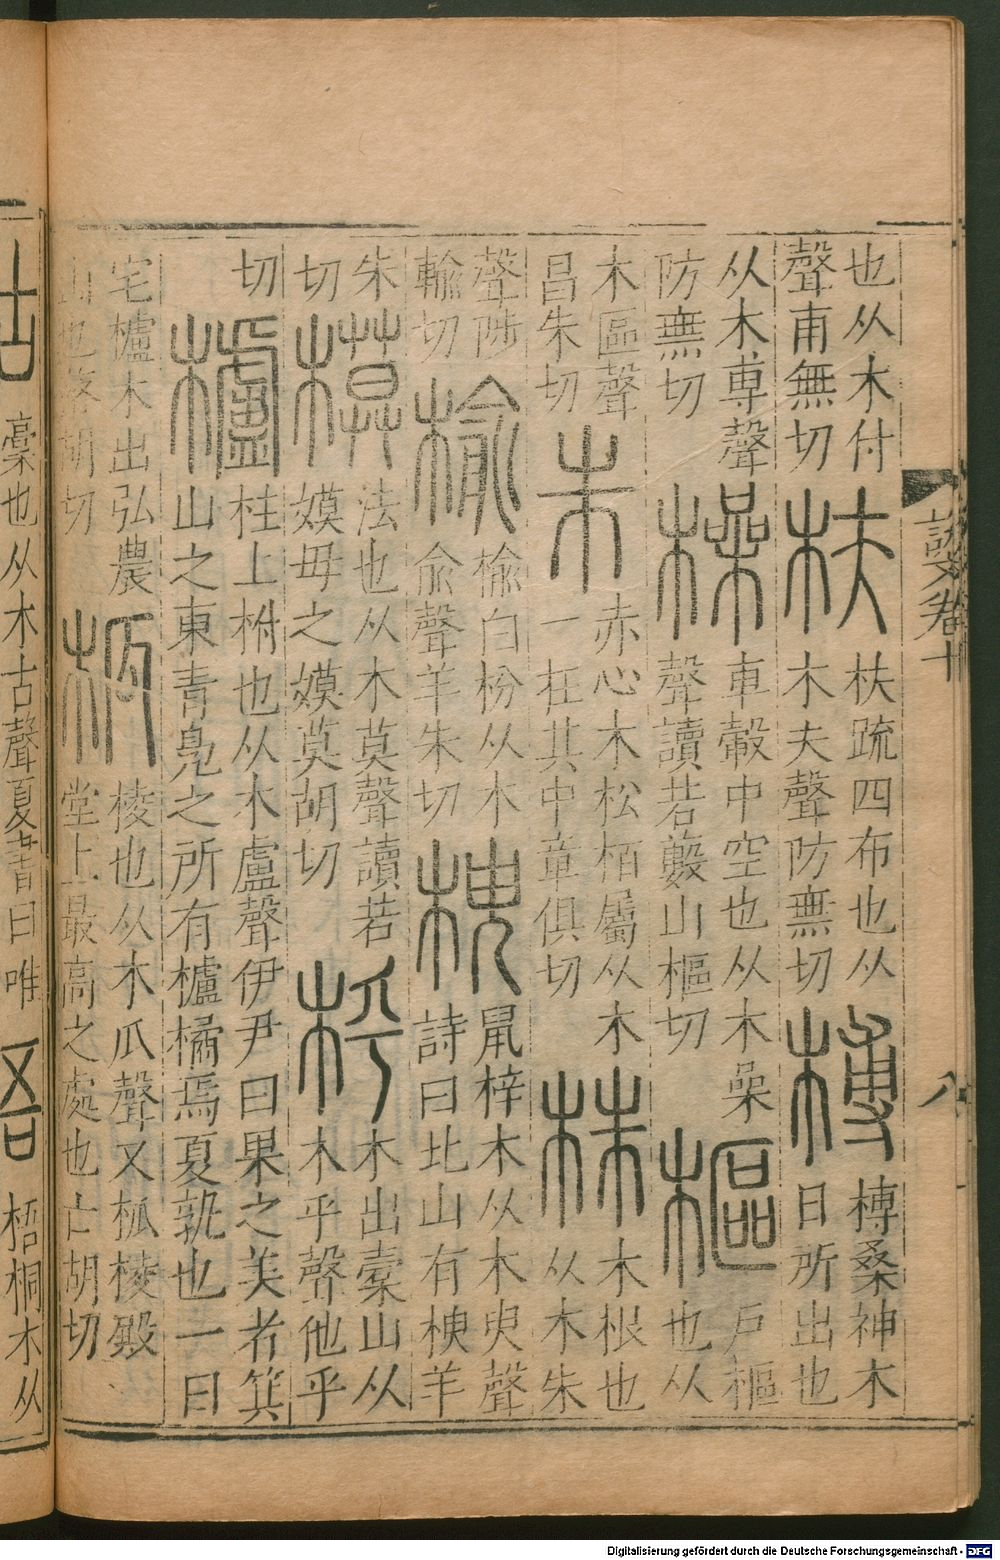 說文卷十
八
也从木付
聲甫無切
枎
枎疏四布也从
木夫聲防無切
榑
榑桑神木
日所出也
从木尃聲
防無切
橾
車轂中空也从木喿
聲讀若藪山樞切
樞
戶樞
也从
木區聲
昌朱切
朱
赤心木松栢屬从木
一在其中章俱切
株
木根也
从木朱
聲陟
輸切
榆
榆白枌从木
俞聲羊朱切
楰
鼠梓木从木臾聲
詩曰北山有楰羊
朱
切
模
法也从木莫聲讀若
嫫母之嫫莫胡切
㭔
木出橐山从
木乎聲他乎
切
櫨
柱上柎也从木盧聲伊尹曰果之美者箕
山之東青鳧之所有櫨橘焉夏孰也一曰
宅櫨木出弘農
山也落胡切
柧
棱也从木瓜聲又柧棱殿
堂上最高之處也亡胡切
槀也从木古聲夏書曰唯
梧桐木从
Digitalisierung gefördert durch die Deutsche Forschungsgemeinschaft - DFG